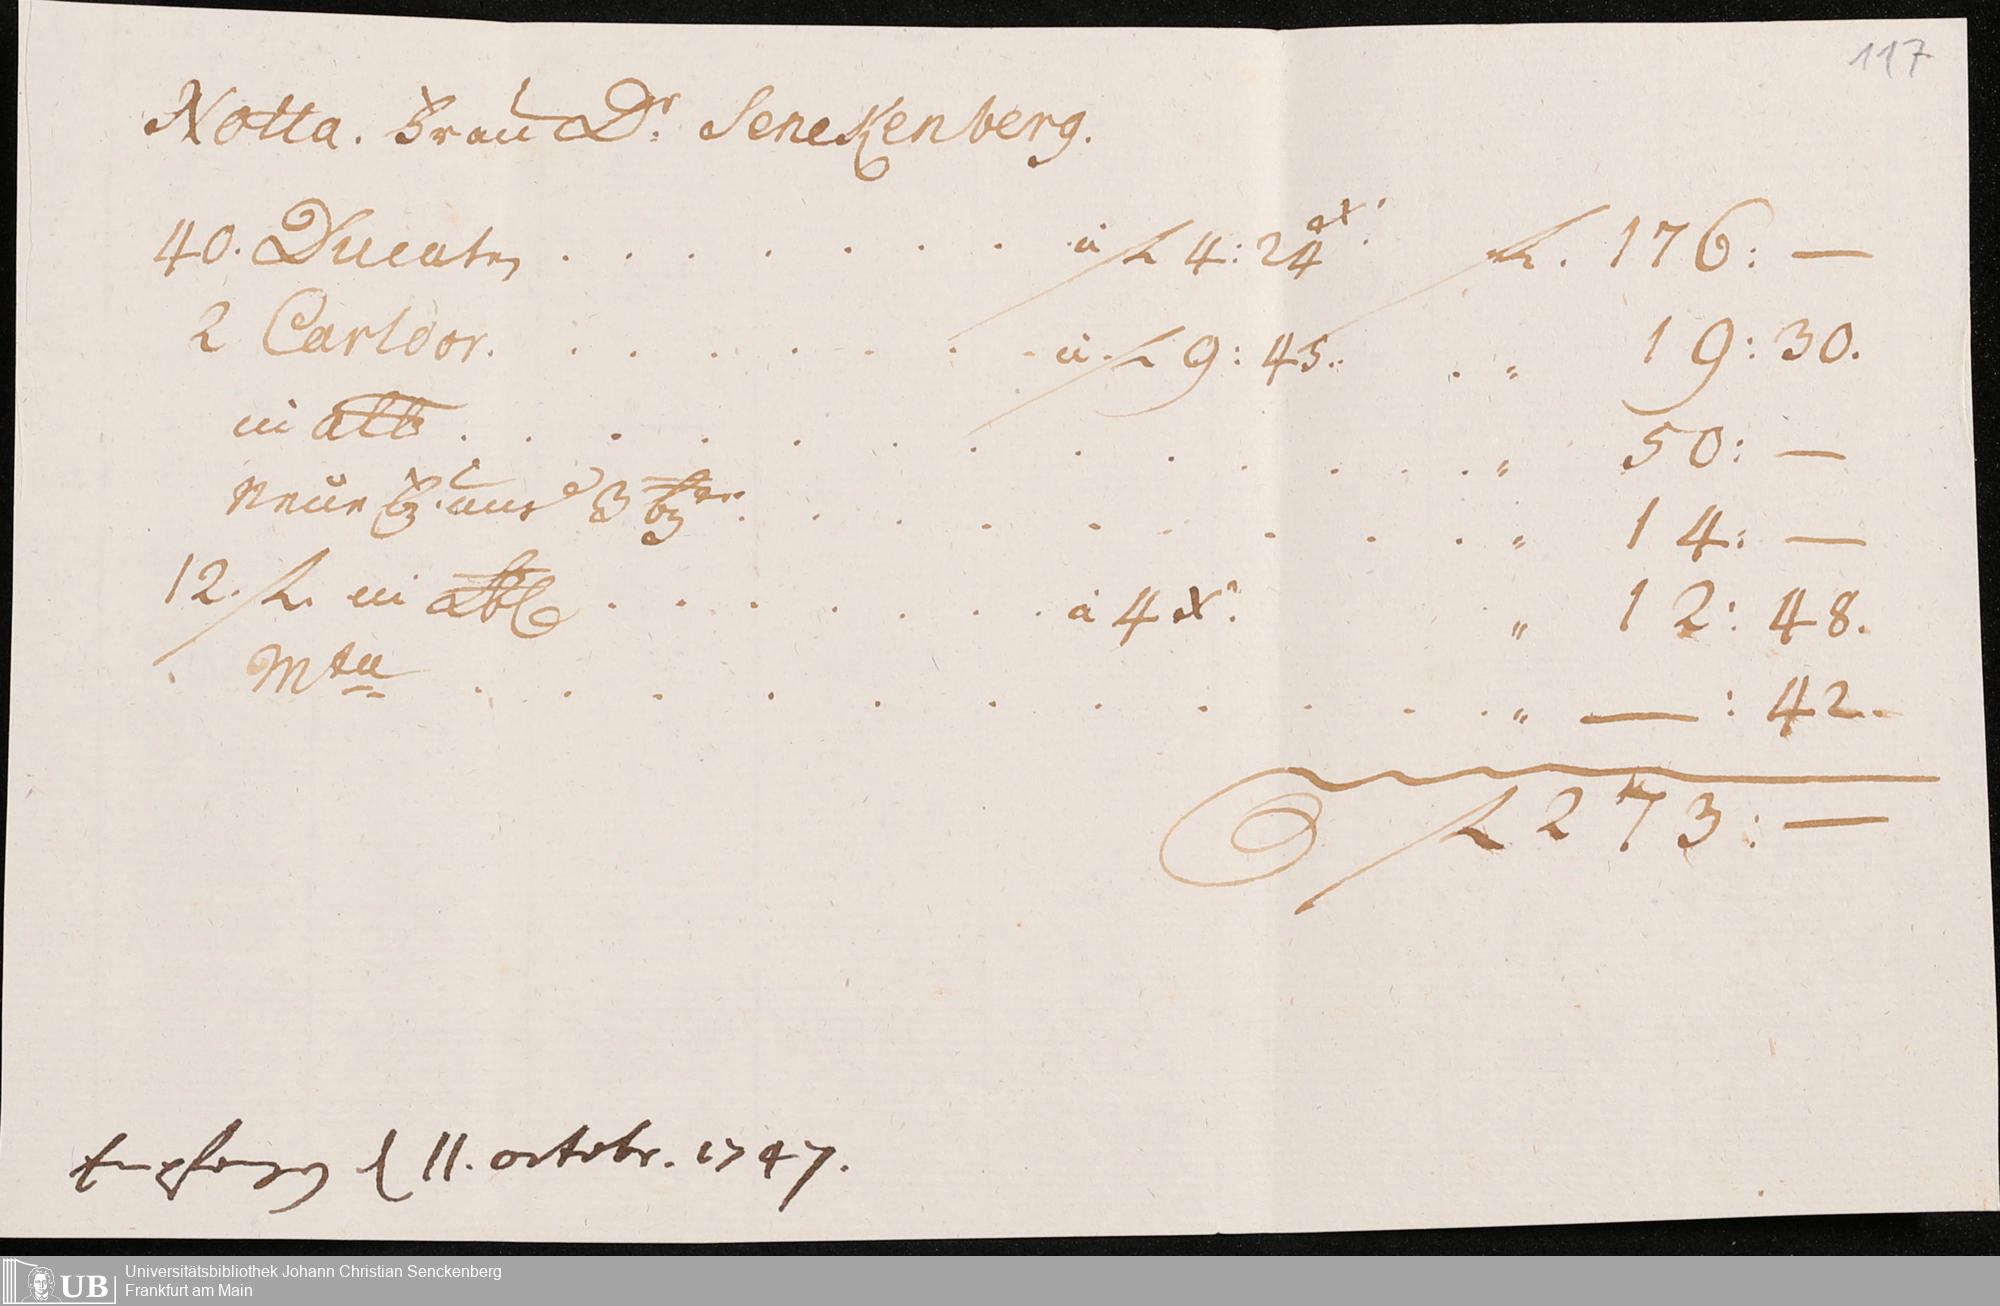 117
Notta. Frau Dr. Senckenberg.
40. Ducaten . . . . . . . à f 4: 24 xr. f. 176: —
2 Carldor. . . . . . . . à f 9: 45. . „ 19: 30.
in . . . . . . . . . . . . . „ 50: —
neue . . . . . . . . . „ 14: —
12. f. in . . . . . . à 4 X. „ 12: 48.
. . . . . . . . . . . „ — : 42.
f 273: —
Empfangen d 11. octobr. 1747.
UB Universitätsbibliothek Johann Christian Senckenberg
Frankfurt am Main